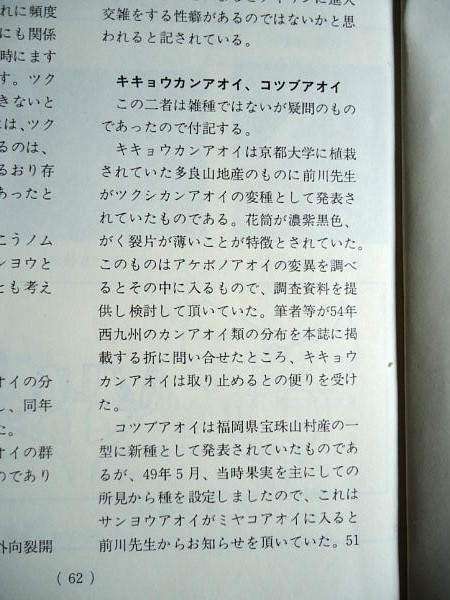 れに頻度
にも関係
時にます
す。ツク
きないと
は、ツク
るのは、
るおり存
あったと
こうノム
ンヨウと
とも考え
オイの分
し、同年
た。
オイの群
のであり
外向裂開
交雑をする性癖があるのではないかと思
われると記されている。
キキョウカンアオイ、コツブアオイ
この二者は雑種ではないが疑問のもの
であったので付記する。
キキョウカンアオイは京都大学に植栽
されていた多良山地産のものに前川先生
がツクシカンアオイの変種として発表さ
れていたものである。花筒が濃紫黒色、
がく裂片が薄いことが特徴とされていた。
このものはアケボノアオイの変異を調べ
るとその中に入るもので、調査資料を提
供し検討して頂いていた。筆者等が54年
西九州のカンアオイ類の分布を本誌に掲
載する折に問い合せたところ、キキョウ
カンアオイは取り止めるとの便りを受け
た。
コツブアオイは福岡県宝珠山村産の一
型に新種として発表されていたものであ
るが、49年5月、当時果実を主にしての
所見から種を設定しましたので、これは
サンヨウアオイがミヤコアオイに入ると
前川先生からお知らせを頂いていた。51
( 62 )